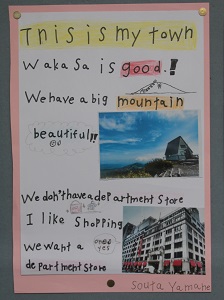 This is my town
Wakasa is good.!
We have a big mountain
beautiful!!
We don't have a department store
I like shopping
we want a
department store
Souta Yamane